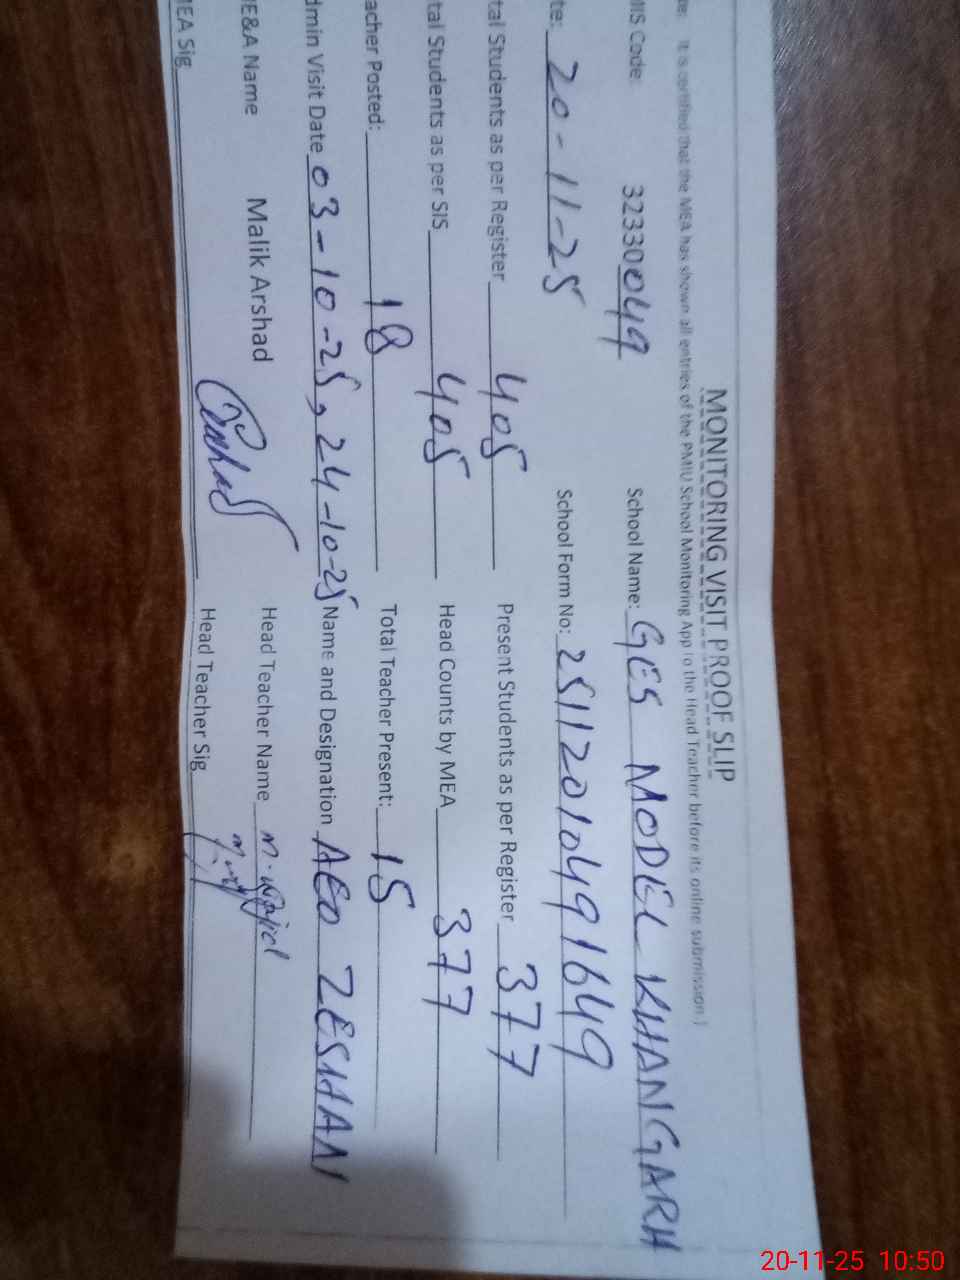 MONITORING VISIT PROOF SLIP
te: It is certified that the MEA has shown all entries of the PMIU School Monitoring App to the Head Teacher before its online submission )
MIS Code: 32330049 School Name: GES MODEL KHANGARH
te: 20-11-25 School Form No: 25112010491649
tal Students as per Register 405 Present Students as per Register 377
tal Students as per SIS 405 Head Counts by MEA 377
acher Posted: 18 Total Teacher Present: 15
dmin Visit Date 03-10-25, 24-10-25 Name and Designation AEO ZESHAN
E&A Name Malik Arshad Head Teacher Name
MEA Sig Head Teacher Sig
20-11-25 10:50